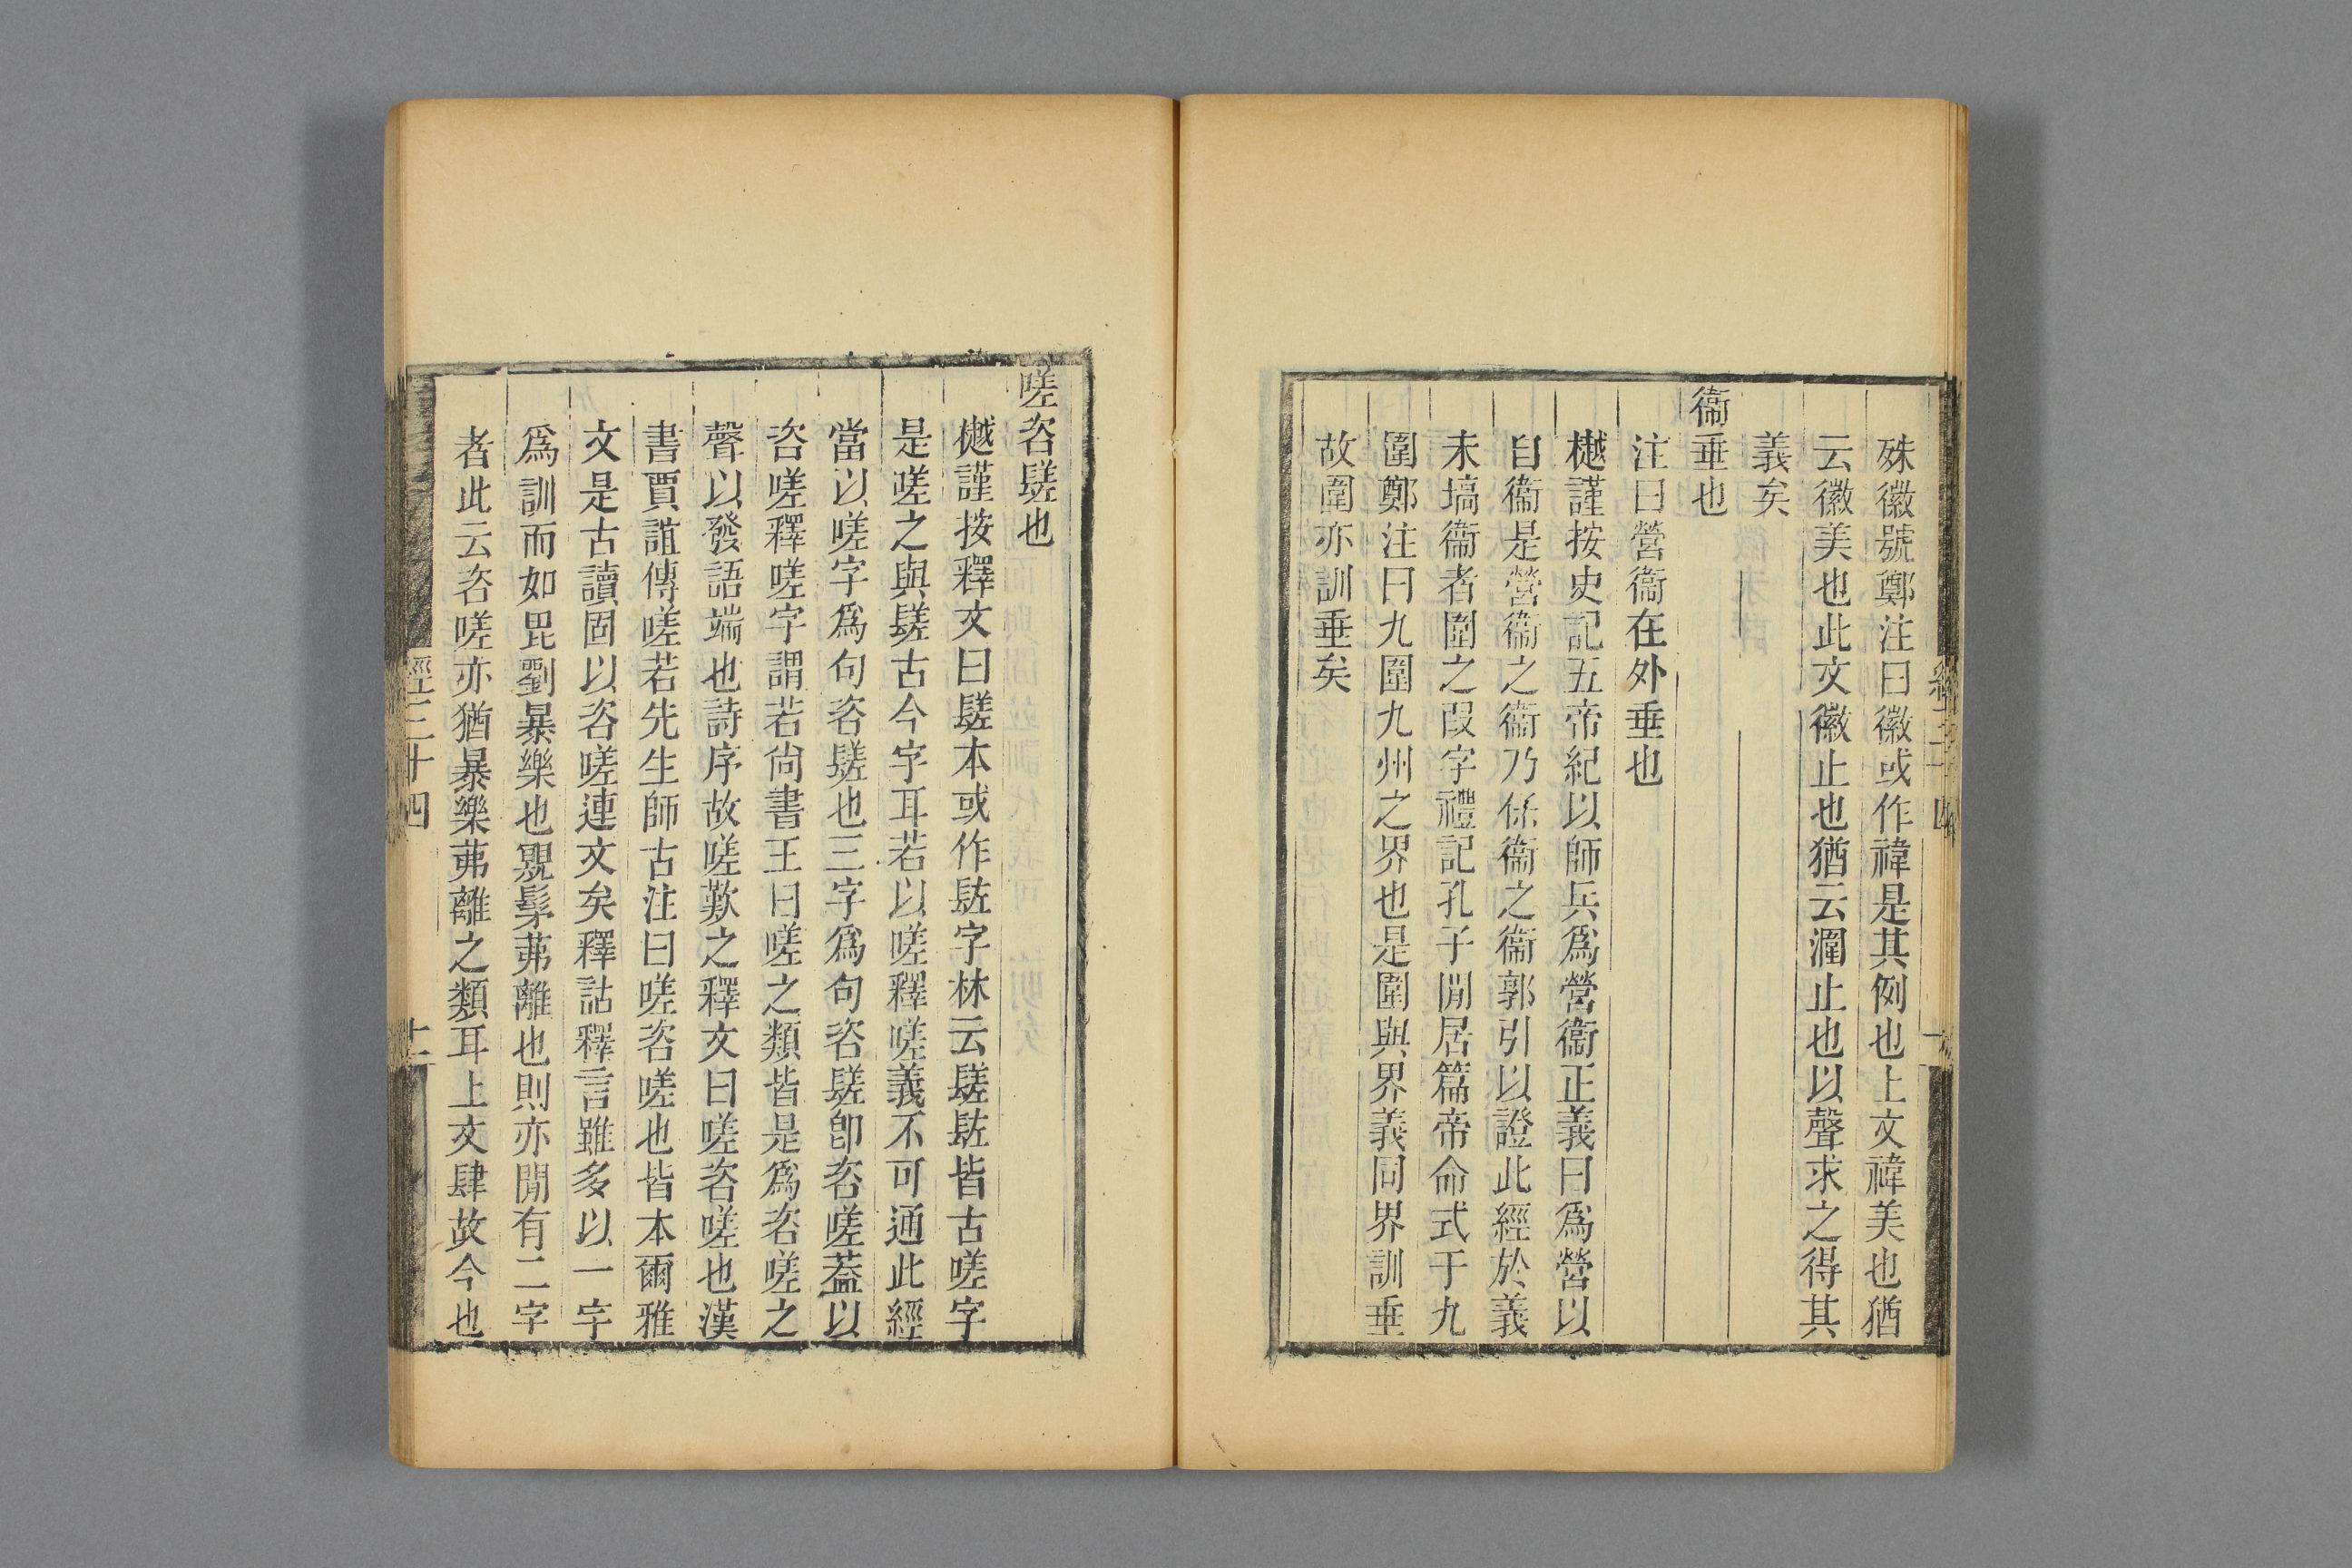 殊徽號鄭注曰徽或作褘是其例也上文褘美也猶
云徽美也此文徽止也猶云潿止也以聲求之得其
義矣
衞垂也
注曰營衞在外垂也
樾謹按史記五帝紀以師兵爲營衞正義曰爲營以
自衞是營衞之衞乃係衞之衞郭引以證此經於義
未塙衞者圍之叚字禮記孔子閒居篇帝命式于九
圍鄭注曰九圍九州之界也是圍與界義同界訓垂
故圍亦訓垂矣
嗟咨䰈也
樾謹按釋文曰䰈本或作𩬳字林云䰈𩬳皆古嗟字
是嗟之與䰈古今字耳若以嗟釋嗟義不可通此經
當以嗟字爲句咨䰈也三字爲句咨䰈卽咨嗟葢以
咨嗟釋嗟字謂若尙書王曰嗟之類皆是爲咨嗟之
聲以發語端也詩序故嗟歎之釋文曰嗟咨嗟也漢
書賈誼傳嗟若先生師古注曰嗟咨嗟也皆本爾雅
文是古讀固以咨嗟連文矣釋詁釋言雖多以一字
爲訓而如毗劉暴樂也覭髳茀離也則亦閒有二字
者此云咨嗟亦猶暴樂茀離之類耳上文肆故今也
經三十四
十一